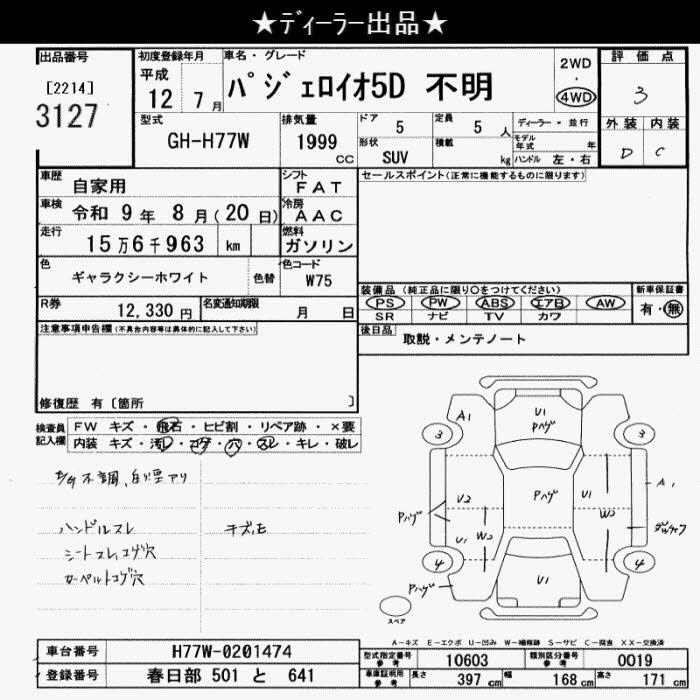 ★ディーラー出品★
出品番号
[2214]
3127
初度登録年月
平成
12年 7月
車名・グレード
パジェロイオ5D 不明
2WD
・
4WD
評価点
3
外装 内装
D C
型式
GH-H77W
排気量
1999
CC
ドア 5
定員 5 人
形状
SUV
積載 kg
ディーラー・並行
モデル年式 年
ハンドル 左・右
車歴
自家用
シフト
FAT
セールスポイント(正常に機能するものに限ります)
車検
令和 9年 8月(20日)
冷房
AAC
走行
15万6千963 km
燃料
ガソリン
色
ギャラクシーホワイト
色替
色コード
W75
装備品 (純正品に限り〇をつけてください)
PS PW ABS エアB AW
SR ナビ TV カワ
新車保証書
有・無
R券
12,330円
名変通知期限
月 日
後日品
取説・メンテノート
注意事項申告欄(不具合内容等は具体的に記入して下さい)
修復歴 有〔箇所 〕
検査員記入欄
FW キズ・飛石・ヒビ割・リペア跡・×要
内装 キズ・汚レ・コゲ・穴・スレ・キレ・破レ
不調、白煙アリ
ハンドルスレ
シートスレ、コゲ穴
カーペットコゲ穴
キズ、モ
A1
U1
Pハゲ
3
3
Pハゲ
U2
U1
W2
Pハゲ
U1
W2
A1
4
4
Pハゲ
U1
スペア
A-キズ E-エクボ U-凹み W-補修跡 S-サビ C-腐食 XX-交換済
車台番号
H77W-0201474
登録番号
春日部 501 と 641
型式指定番号
参考
10603
類別区分番号
参考
0019
車庫証明用
参考
長さ 397 cm
幅 168 cm
高さ 171 cm